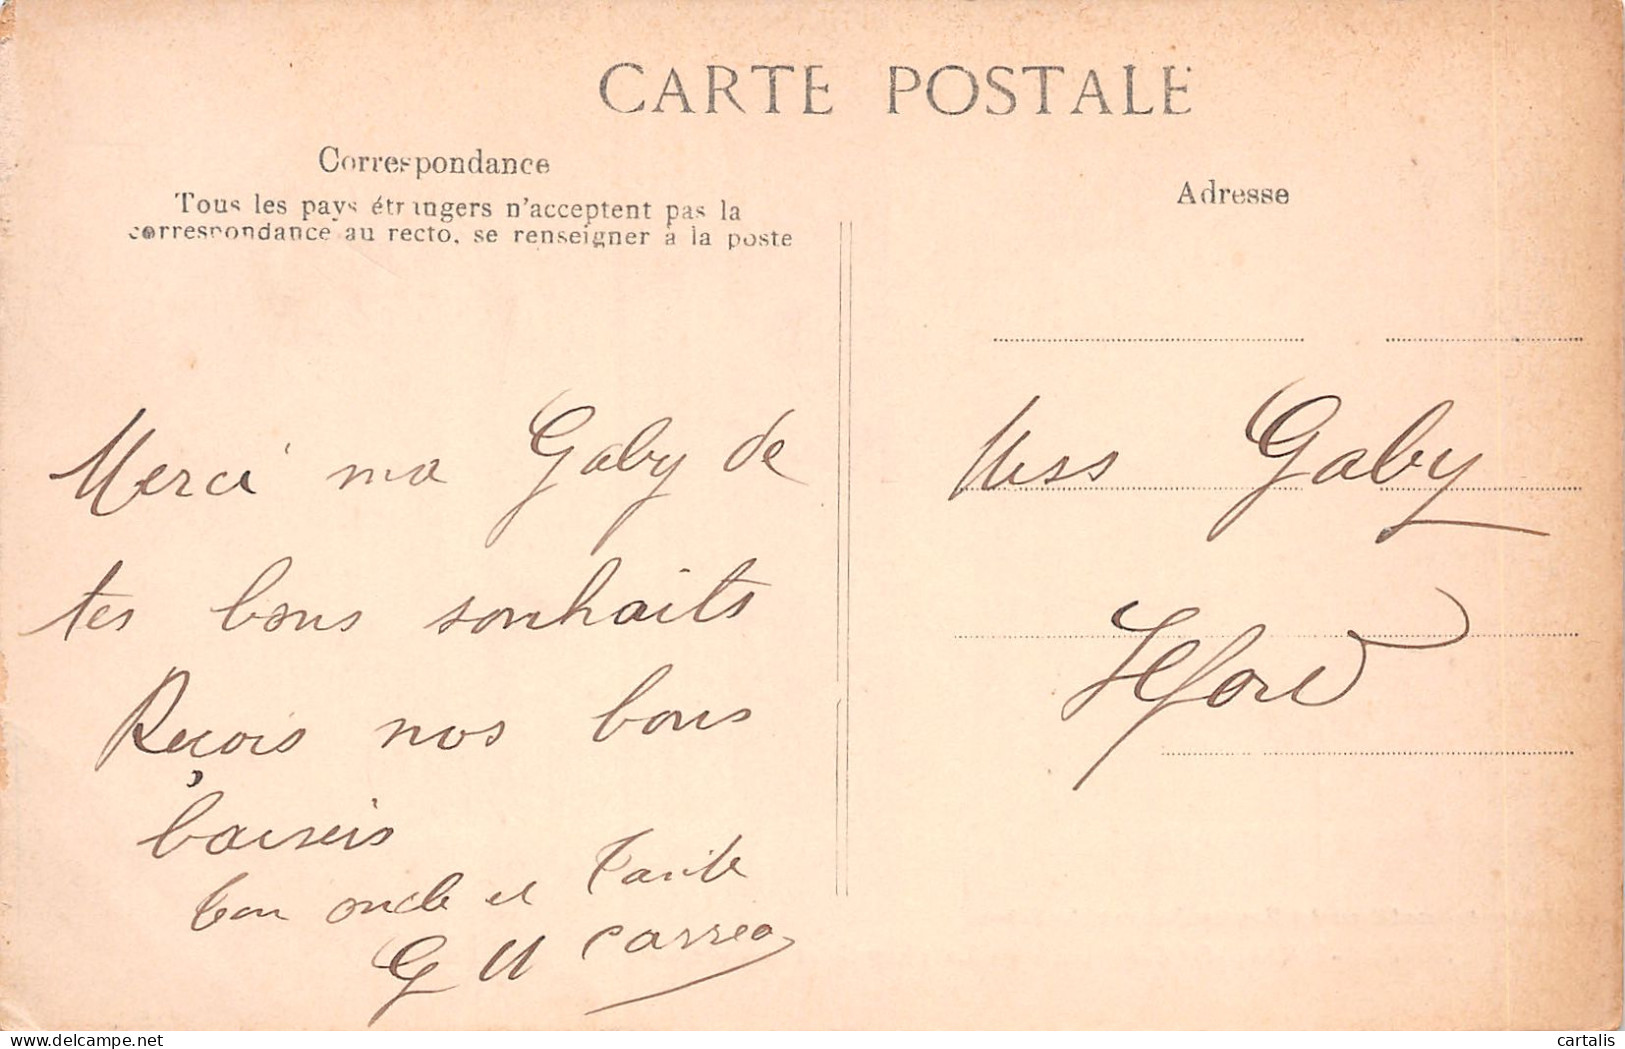 CARTE POSTALE
Correspondance
Tous les pays étrangers n'acceptent pas la
correspondance au recto, se renseigner à la poste
Merci ma Gaby de
tes bons souhaits
Reçois nos bons
baisers
ton oncle et Tante
G M
Adresse
Miss Gaby
delcampe.net
cartalis